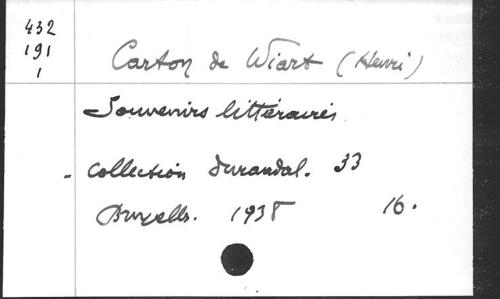 432
191
1
Carton de Wiart (Henri)
Souvenirs littéraires
- Collection Durandal. 33
Bruxelles. 1938 16.